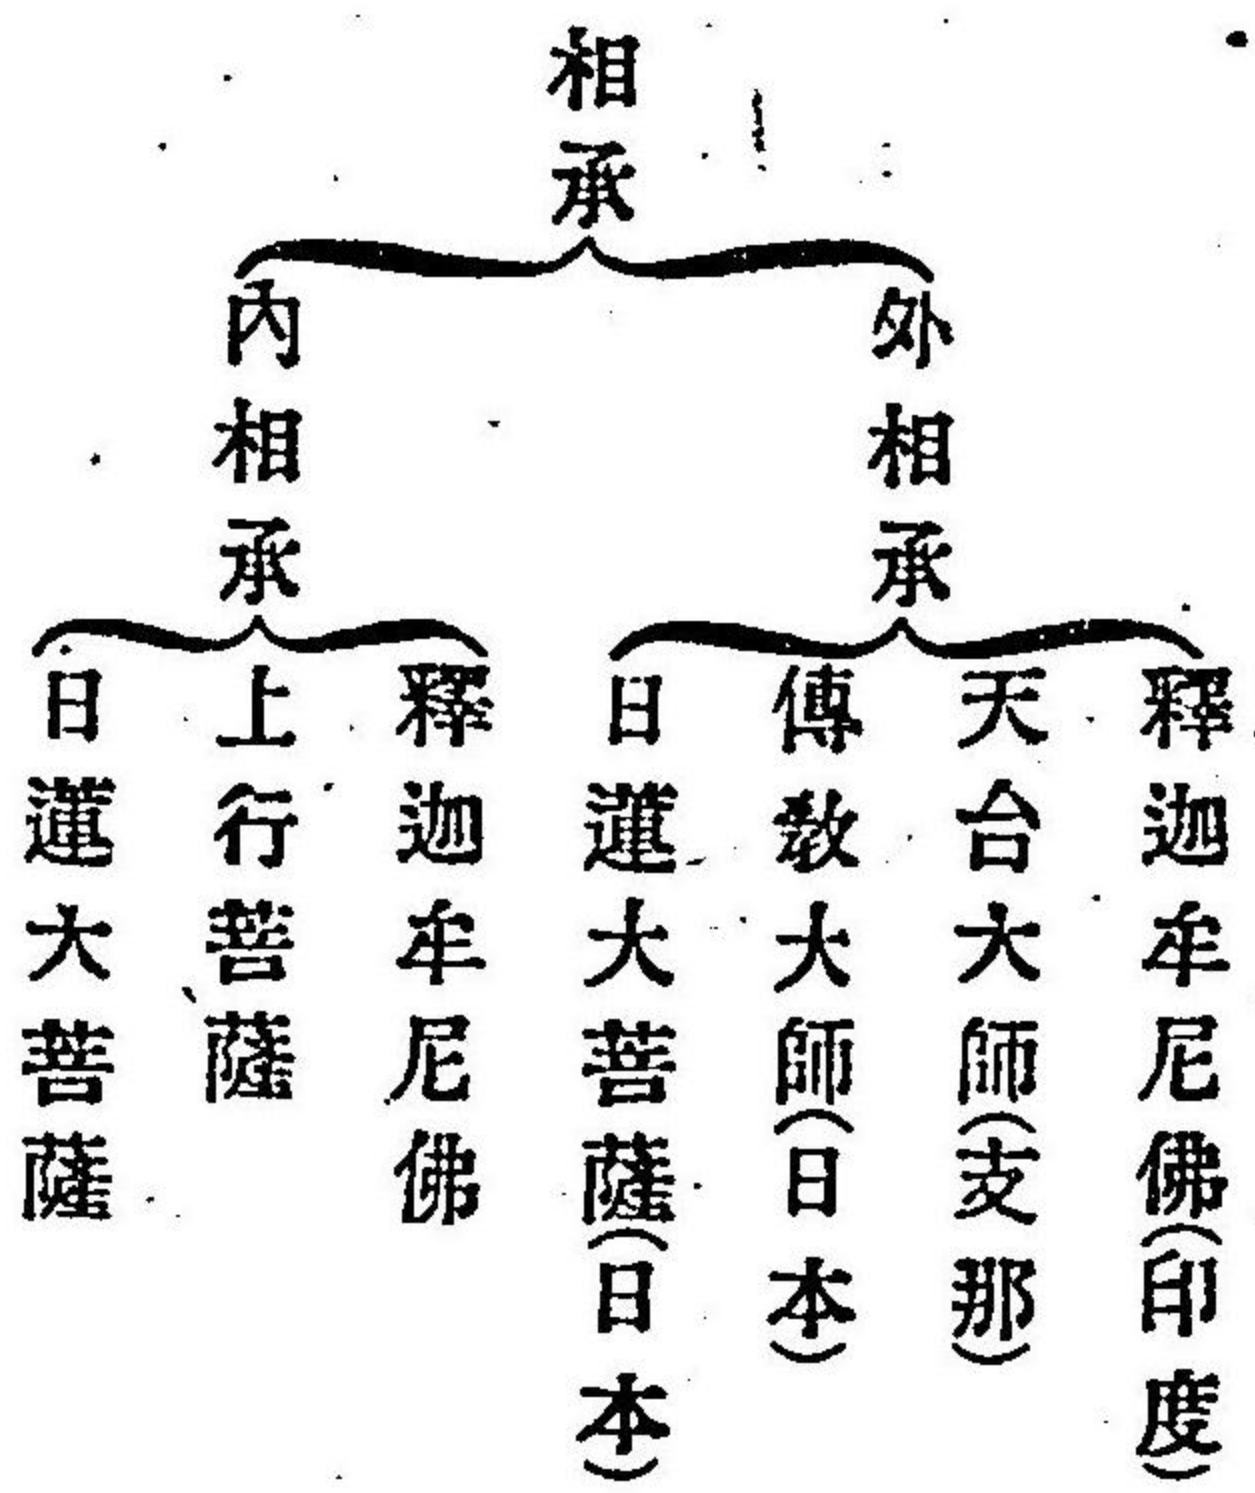 相承
外相承
釋迦牟尼佛(印度)
天台大師(支那)
傳敎大師(日本)
日蓮大菩薩(日本)
內相承
釋迦牟尼佛
上行菩薩
日蓮大菩薩